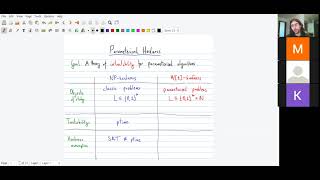 Parameterized Hardness
Goal: A theory of intractability for parameterized algorithms.
NP-hardness
W[1]-hardness
Objects of study
classic problems
L ⊆ {0,1}*
parameterized problems
L ⊆ {0,1}* × ℕ
Tractability:
ptime
Hardness assumption
SAT ∉ ptime
M
K